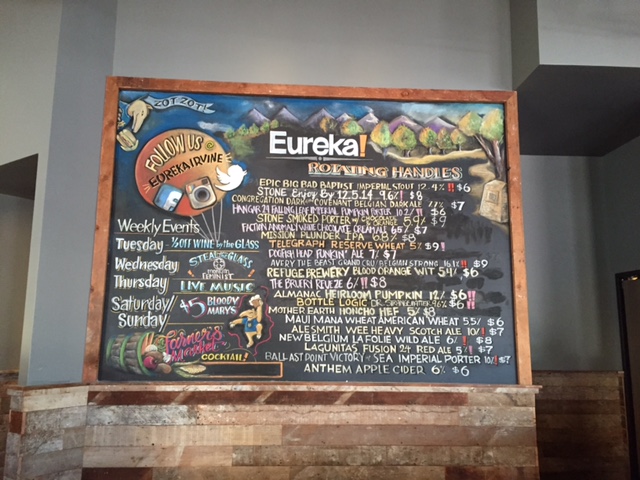 ZOT ZOT!
FOLLOW US @
EUREKAIRVINE
Weekly Events
Tuesday 1/2 OFF WINE by the GLASS
Wednesday STEAL the GLASS
Thursday LIVE MUSIC
Saturday/
Sunday/
$5 BLOODY
MARYS
Farmer's
Market
COCKTAIL!
Eureka!
ROTATING HANDLES
EPIC BIG BAD BAPTIST IMPERIAL STOUT 12.4% !! $6
STONE Enjoy By 12.5.14 9.6% ! $8
CONGREGATION DARK COVENANT BELGIAN DARK ALE $7
HANGAR 24 FALLING LEAF IMPERIAL PUMPKIN PORTER 10.2% !! $6
STONE SMOKED PORTER w/ CHOCOLATE ORANGE 5.9% $9
FACTION ANIMAL WHITE CHOCOLATE CREAM ALE $7
MISSION PLUNDER IPA 6.8% $8
TELEGRAPH RESERVE WHEAT 5% $9 !
DOGFISH HEAD PUNKIN' ALE 7% $7
AVERY THE BEAST GRAND CRU/BELGIAN STRONG 16.1% !! $9
REFUGE BREWERY BLOOD ORANGE WIT 5% $6
THE BRUERY REUEZE 6% !! $8
ALMANAC HEIRLOOM PUMPKIN 12% $6 !!
BOTTLE LOGIC 9.6% $6
MOTHER EARTH HONCHO HEF 5% $8
MAUI MANA WHEAT AMERICAN WHEAT 5.5% $6
ALESMITH WEE HEAVY SCOTCH ALE 10% ! $7
NEW BELGIUM LA FOLIE WILD ALE 6% ! $8
LAGUNITAS FUSION 24 RED ALE 5% ! $7
BALLAST POINT VICTORY @ SEA IMPERIAL PORTER 10% ! $7
ANTHEM APPLE CIDER 6% $6